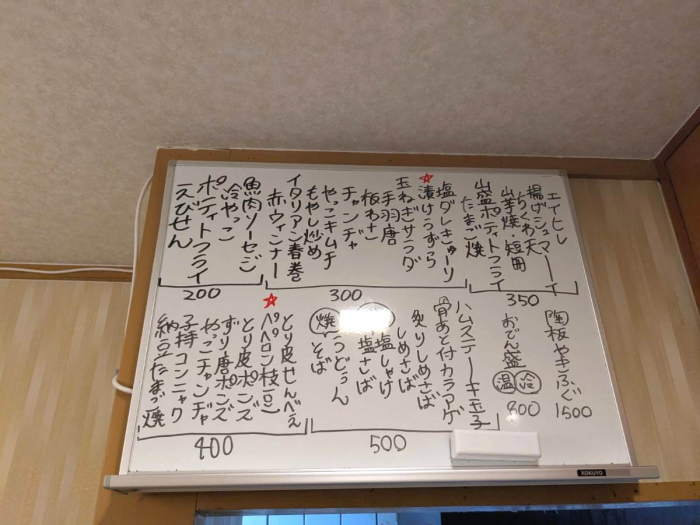 エイヒレ
揚げシューマーイ
ちくわ天
山芋焼・短冊
山盛ポティトフライ
たまご焼
350
塩ダレきゅーり
漬けうずら
玉ねぎサラダ
手羽唐
板わさ
チャンヂャ
やっこキムチ
もやし炒め
イタリアン春巻
赤ウィンナー
300
魚肉ソーセージ
冷やっこ
ポティトフライ
えびせん
200
陶板やきふぐ
1500
おでん盛
温 冷
900
ハムステーキ玉子
骨あと付カラアゲ
炙りしめさば
しめさば
塩しゃけ
塩さば
焼
うどぅん
そば
500
とり皮せんべえ
ペペロン枝豆
とり皮ポンズ
ずり唐ポンズ
やっこチャンヂャ
子持コンニャク
納豆たまご焼
400
KOKUYO